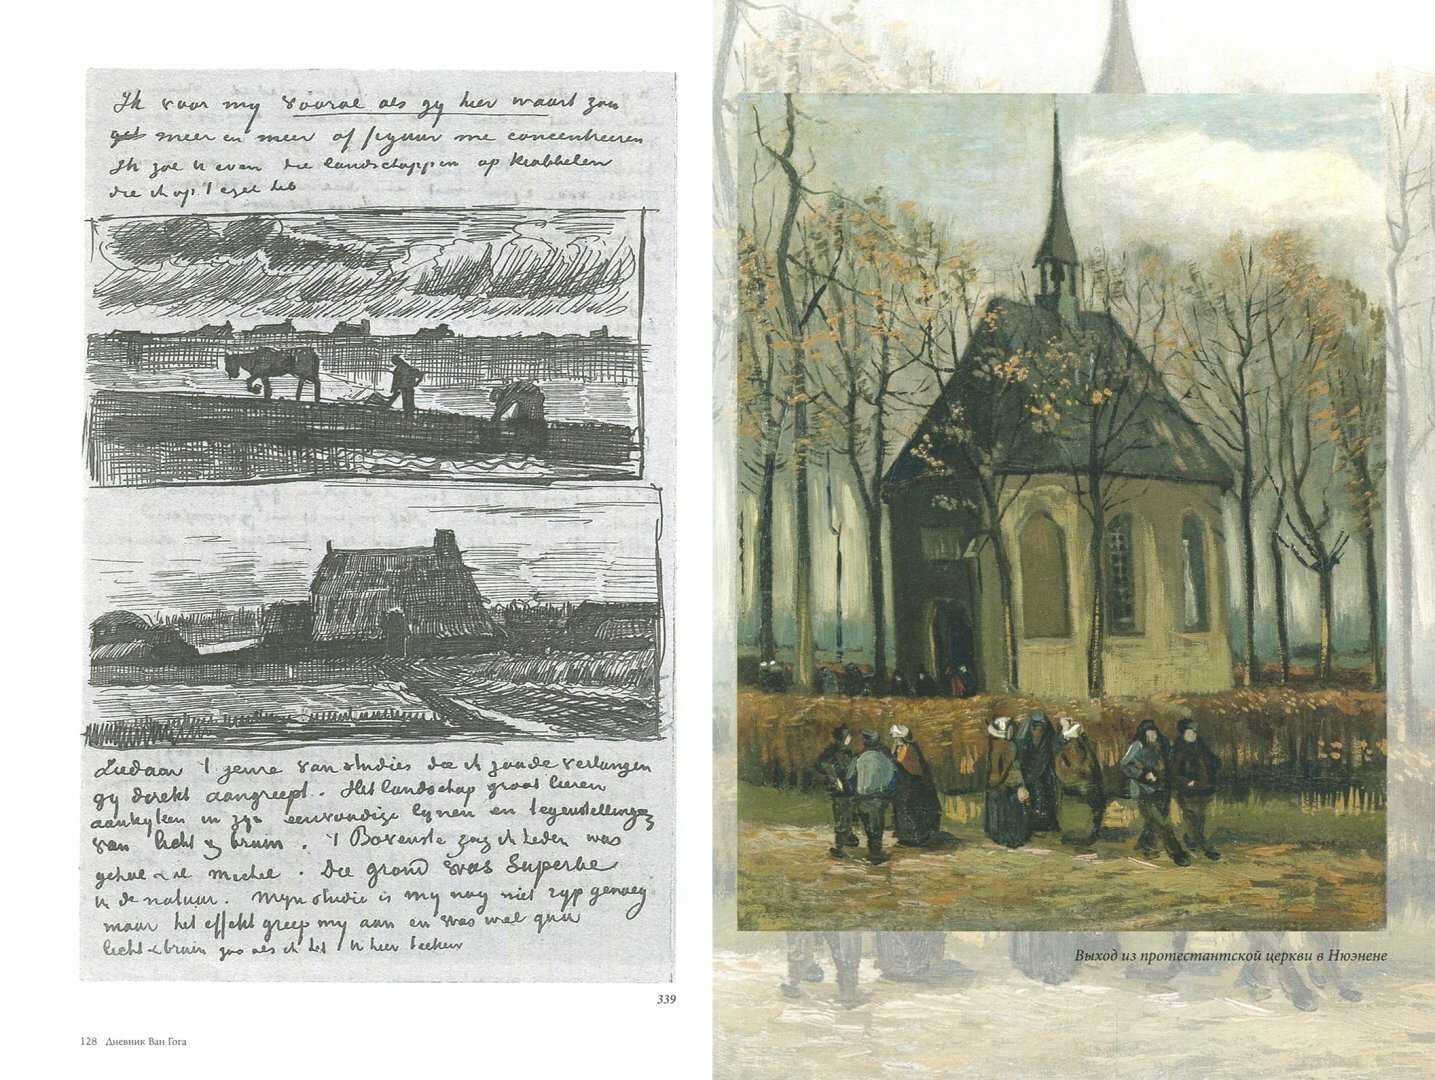 Ik voor my vooral als gy hier waart zou
meer en meer op figuur me concentreeren
Ik zal U even die landschappen op krabbelen
die ik op 't ezel heb
Ziedaar 't genre van studies die ik zoude verlangen
gy direkt aangreept. Het landschap groot leeren
aankyken in zyn eenvoudige lynen en tegenstellingen
van licht & bruin. 't Bovenste zag ik heden was
geheel al Michel. Die grond was superbe
in de natuur. Myn studie is my nog niet ryp genoeg
maar het effekt greep my aan en was wel qua
licht & bruin zoo als ik het U hier teeken
339
128 Дневник Ван Гога
Выход из протестантской церкви в Нюэнене